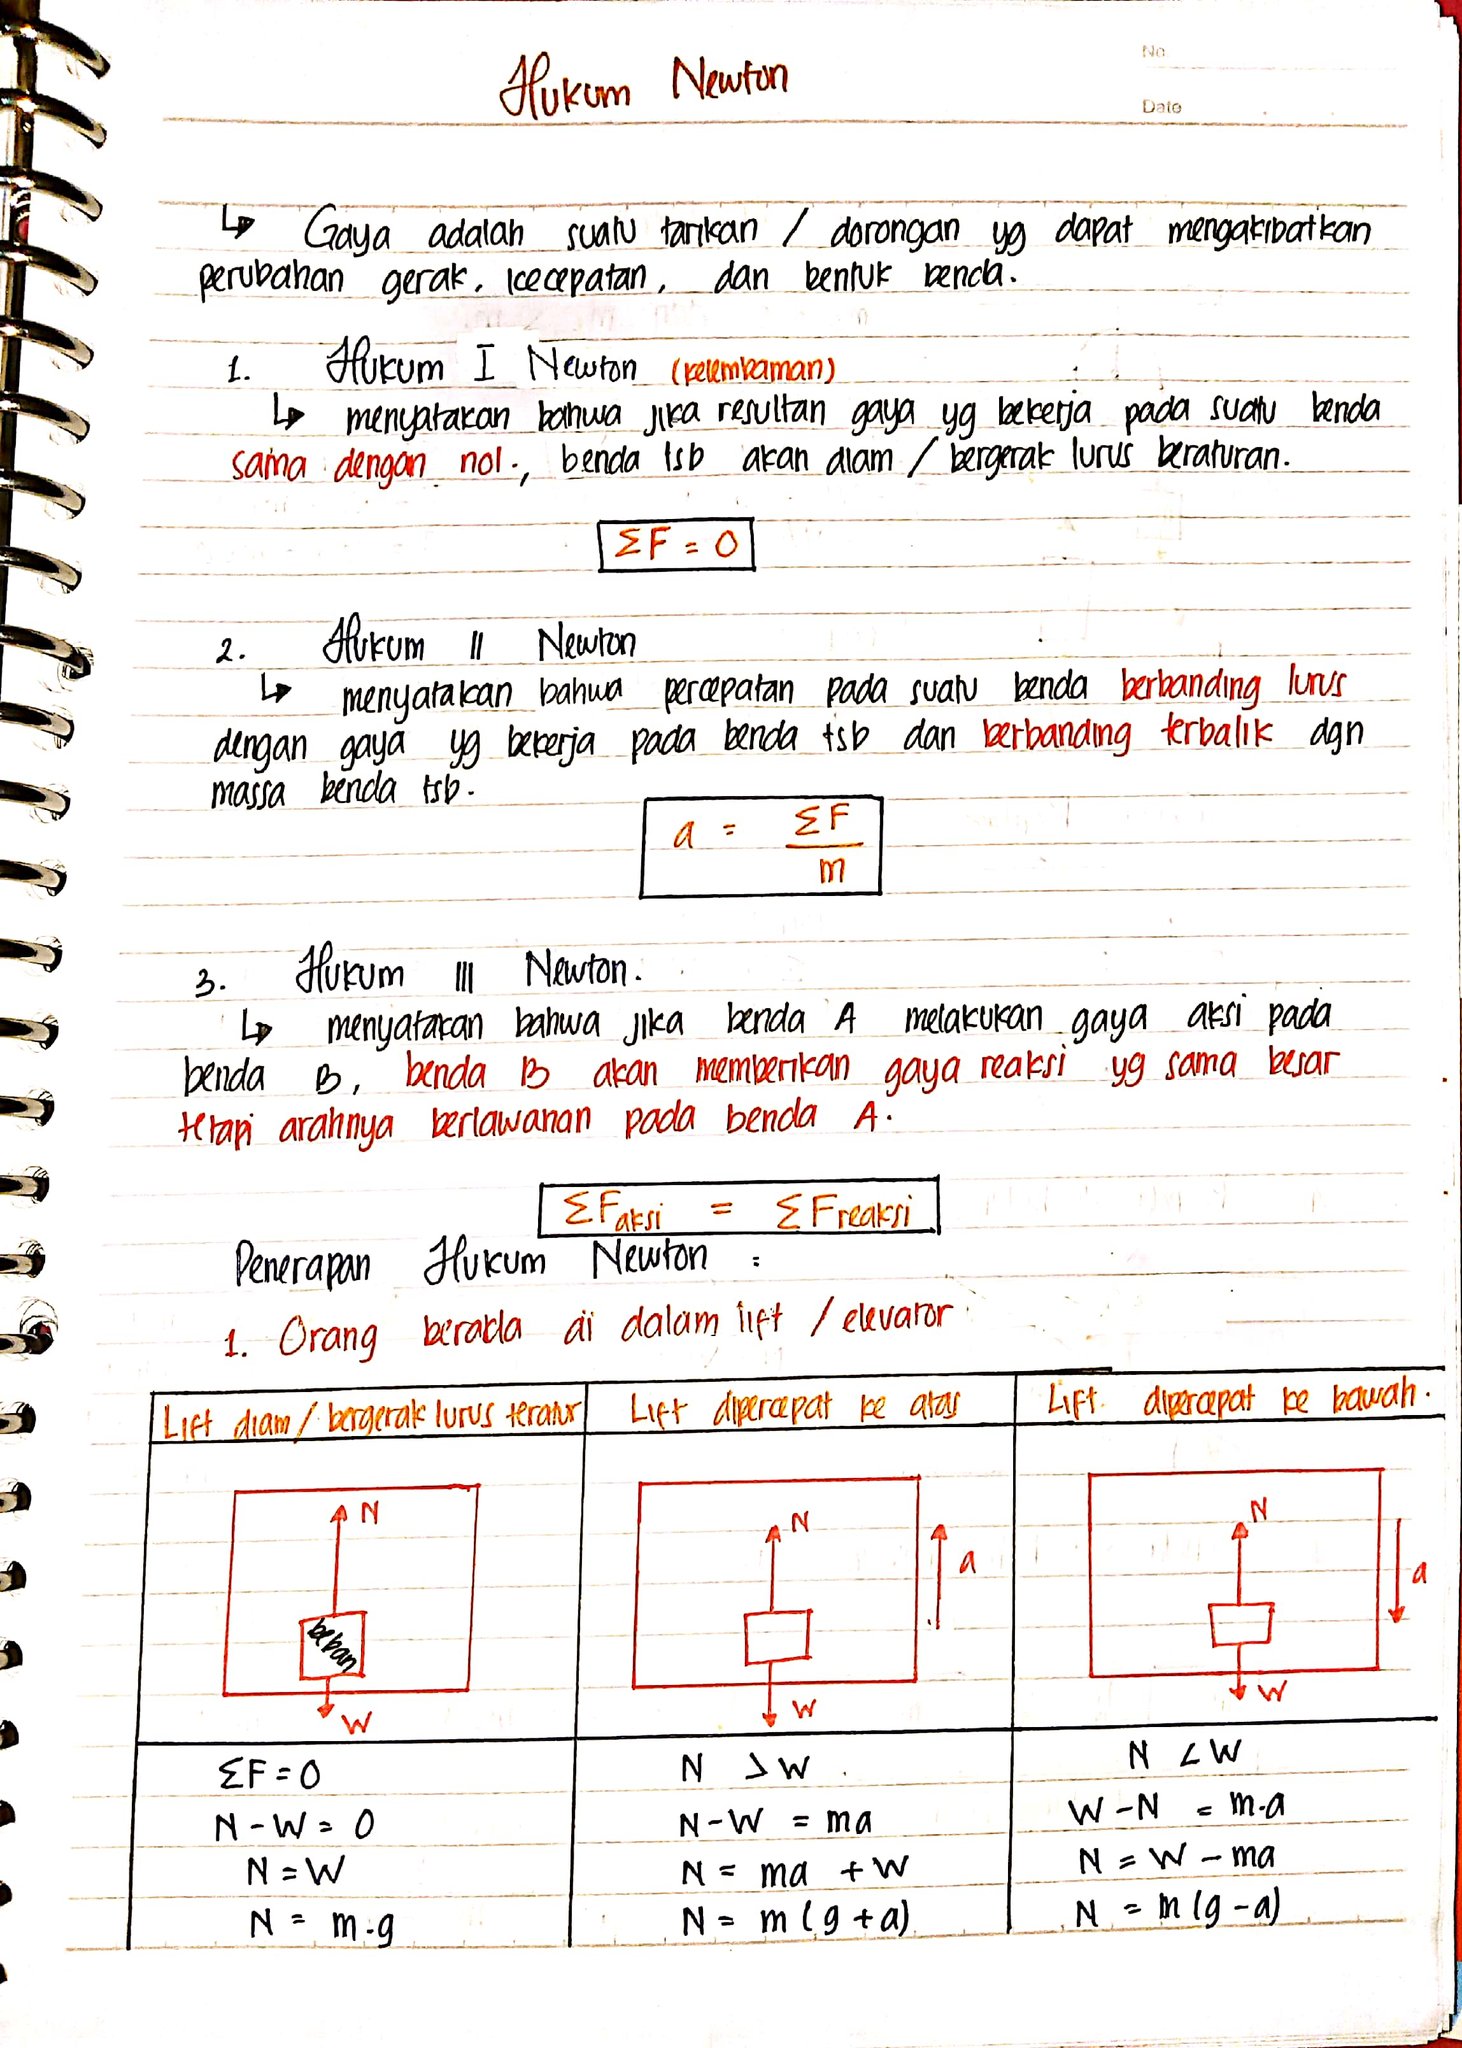 No
Date
Hukum Newton
↳ Gaya adalah suatu tarikan / dorongan yg dapat mengakibatkan
perubahan gerak, kecepatan, dan bentuk benda.
1. Hukum I Newton (kelembaman)
↳ menyatakan bahwa jika resultan gaya yg bekerja pada suatu benda
sama dengan nol., benda tsb akan diam / bergerak lurus beraturan.
ΣF = 0
2. Hukum II Newton
↳ menyatakan bahwa percepatan pada suatu benda berbanding lurus
dengan gaya yg bekerja pada benda tsb dan berbanding terbalik dgn
massa benda tsb.
a = ΣF / m
3. Hukum III Newton.
↳ menyatakan bahwa jika benda A melakukan gaya aksi pada
benda B, benda B akan memberikan gaya reaksi yg sama besar
tetapi arahnya berlawanan pada benda A.
ΣFaksi = ΣFreaksi
Penerapan Hukum Newton :
1. Orang berada di dalam lift / elevator
Lift diam / bergerak lurus teratur
N
beban
W
ΣF = 0
N - W = 0
N = W
N = m.g
Lift dipercepat ke atas
N
a
W
N > W
N - W = ma
N = ma + W
N = m (g + a)
Lift dipercepat ke bawah.
N
a
W
N < W
W - N = m.a
N = W - ma
N = m (g - a)